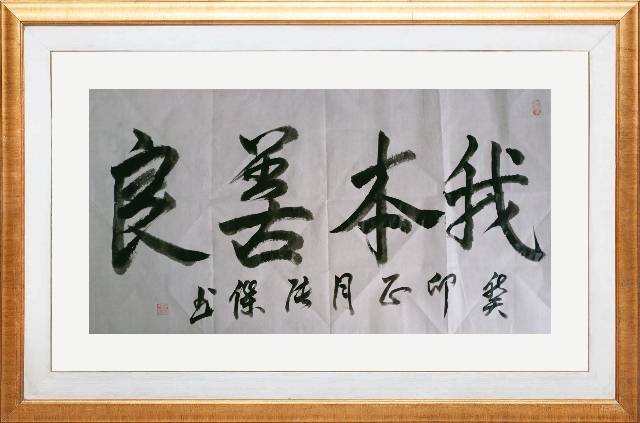 我本善良
癸卯正月张保书